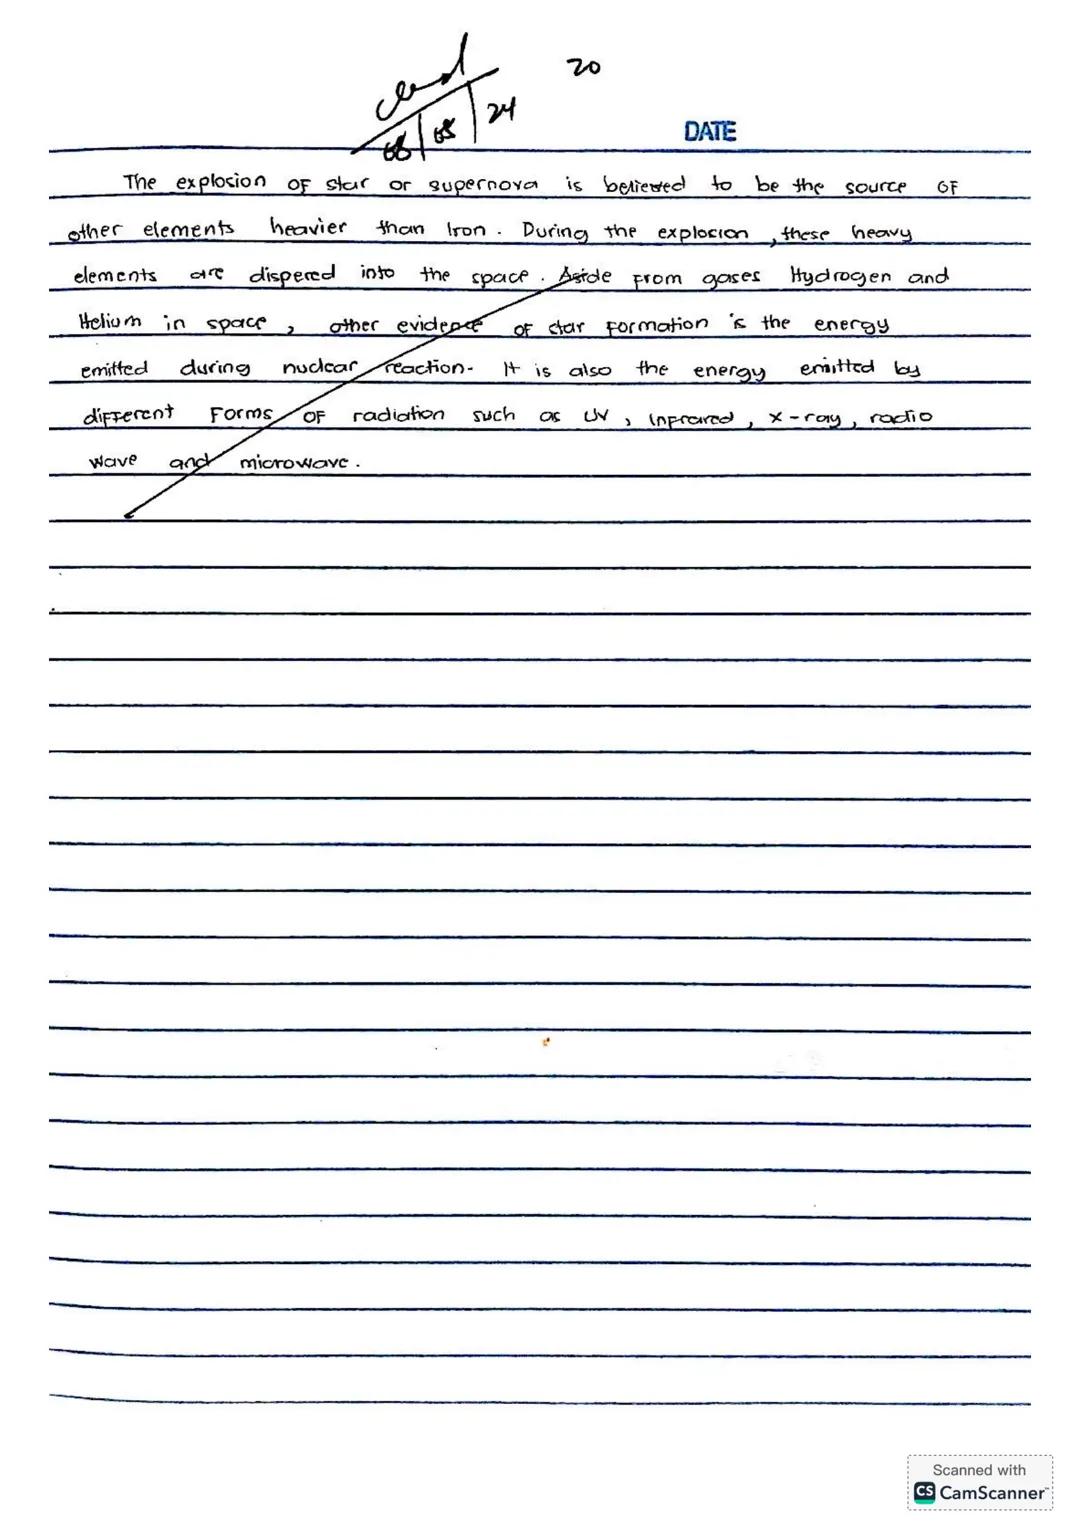 20
08/08/24
DATE
The explosion of star or supernova is believed to be the source of
other elements heavier than Iron. During the explosion, these heavy
elements are dispered into the space. Aside from gases Hydrogen and
Helium in space, other evidence of star formation is the energy
emitted during nuclear reaction. It is also the energy emitted by
different Forms of radiation such as UV, infrared, x-ray, radio
wave and microwave.
Scanned with
CS CamScanner